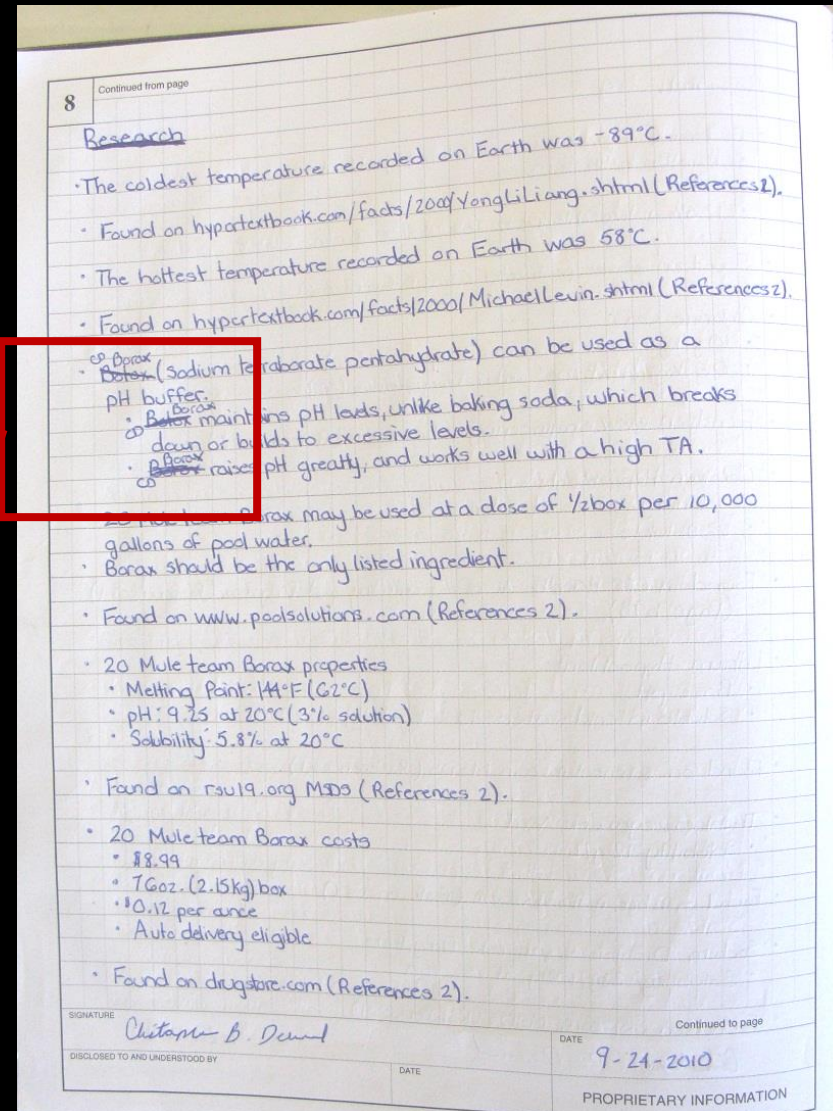 8
Continued from page
Research
· The coldest temperature recorded on Earth was -89°C.
· Found on hypertextbook.com/facts/2000/YongLiLiang.shtml (References 2).
· The hottest temperature recorded on Earth was 58°C.
· Found on hypertextbook.com/facts/2000/MichaelLevin.shtml (References 2).
CD Borax
· Botox (sodium tetraborate pentahydrate) can be used as a
pH buffer.
Borax
· Botox maintains pH levels, unlike baking soda, which breaks
CD
down or builds to excessive levels.
Borax
· Botox raises pH greatly, and works well with a high TA.
CD
20 Mule team Borax may be used at a dose of 1/2 box per 10,000
gallons of pool water.
· Borax should be the only listed ingredient.
· Found on www.poolsolutions.com (References 2).
· 20 Mule team Borax properties
· Melting Point: 144°F (62°C)
· pH: 9.25 at 20°C (3% solution)
· Solubility: 5.8% at 20°C
· Found on rsu19.org MSDS (References 2).
· 20 Mule team Borax costs
· $8.99
· 76oz. (2.15kg) box
· $0.12 per ounce
· Auto delivery eligible
· Found on drugstore.com (References 2).
SIGNATURE
B.
Continued to page
DATE
9-24-2010
DISCLOSED TO AND UNDERSTOOD BY
DATE
PROPRIETARY INFORMATION